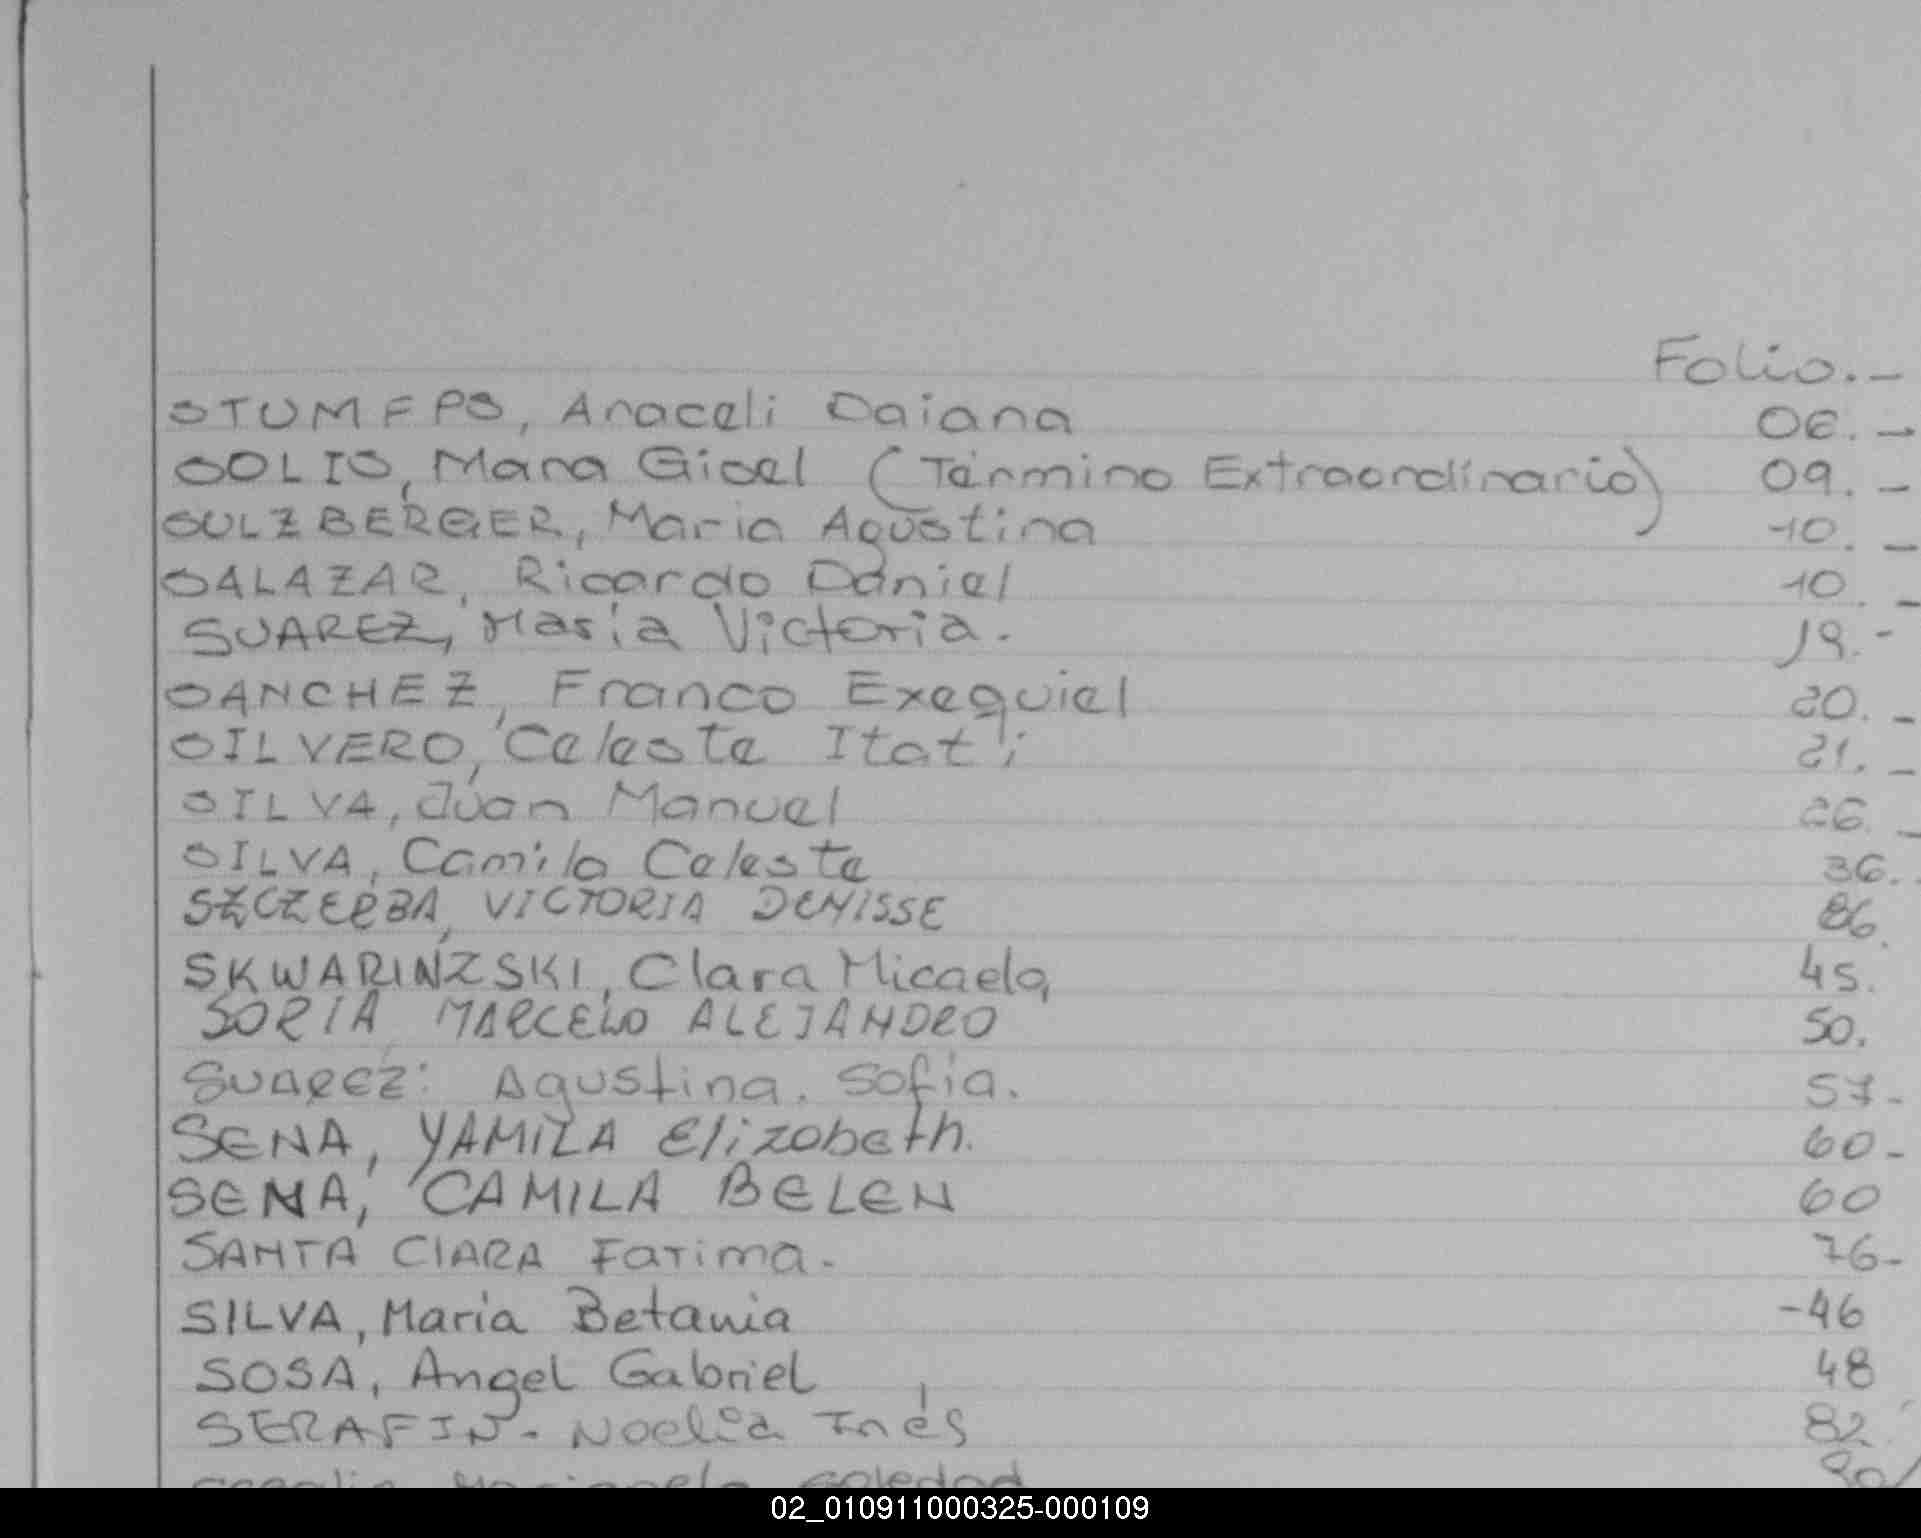 Folio.-
STUMFPS, Araceli Daiana 06.-
SOLIS, Mara Gisel (Término Extraordinario) 09.-
SULZBERGER, Maria Agustina 10.-
SALAZAR, Ricardo Daniel 10.-
SUAREZ, María Victoria. 19.-
SANCHEZ, Franco Exequiel 20.-
SILVERO, Celeste Itatí 21.-
SILVA, Juan Manuel 26.-
SILVA, Camila Celeste 36.
SZCZERBA, VICTORIA DENISSE 86.
SKWARINZSKI, Clara Micaela 45.
SORIA MARCELO ALEJANDRO 50.
SUAREZ: Agustina. Sofía. 57-
SENA, YAMILA Elizabeth. 60-
SENA, CAMILA BELEN 60
SANTA CLARA Fatima. 76-
SILVA, María Betania -46
SOSA, Angel Gabriel 48
SERAFIN. Noelia Inés 82
soledad
02_010911000325-000109